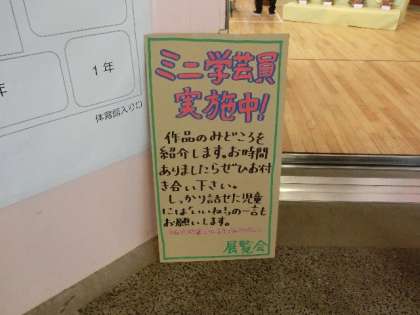 ミニ学芸員
実施中!
作品のみどころを
紹介します。お時間
ありましたらぜひお付
き合い下さい。
しっかり話せた児童
には「いいね!」の一言も
お願いします。
展覧会
1年
年
体育館入り口